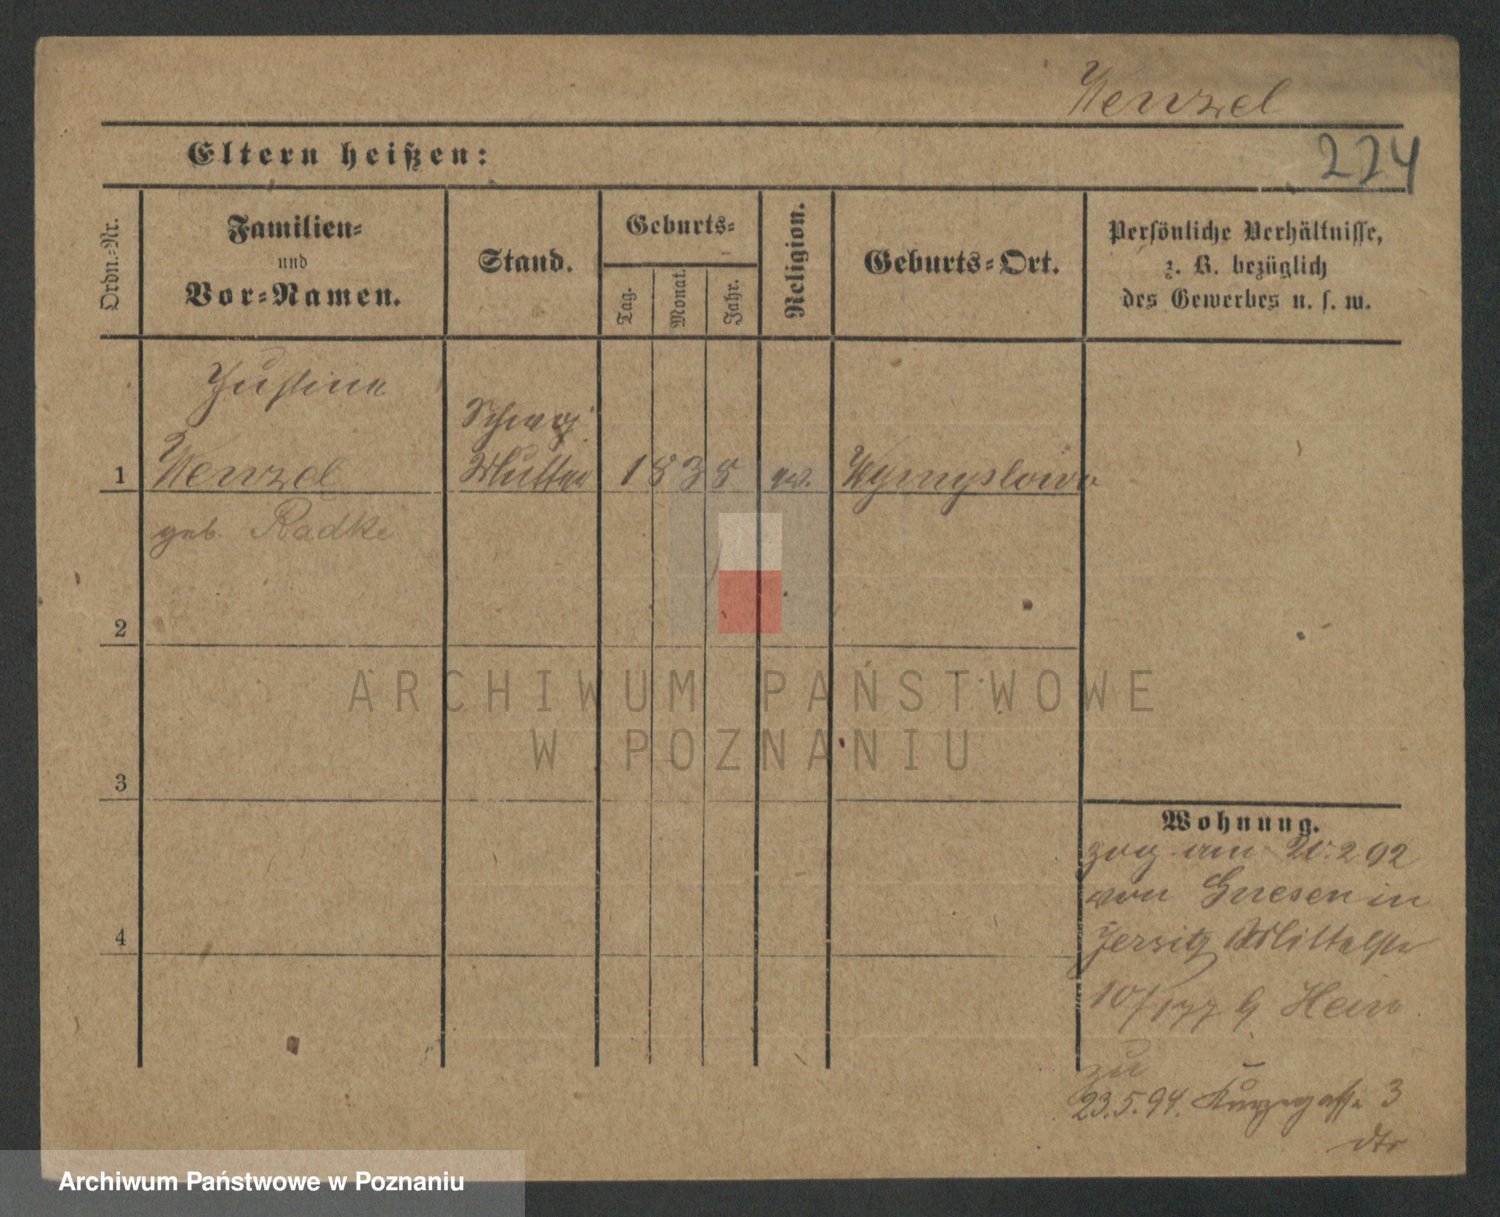 Wenzel
224
Eltern heißen:
Ordn.-Nr.
Familien-
und
Vor-Namen.
Stand.
Geburts-
Tag.
Monat.
Jahr.
Religion.
Geburts-Ort.
Persönliche Verhältnisse,
z. B. bezüglich
des Gewerbes u. s. w.
Justine
Schwg.
1 Wenzel Mutter 1838 ev. Wymyslowo
geb. Radke
2
3
4
Wohnung.
zog am 20.2 92
von Gnesen in
Jersitz Mittelstr
10/177 b Hein
zu
23.5.94. Kurzegasse 3
dto
ARCHIWUM PAŃSTWOWE
W POZNANIU
Archiwum Państwowe w Poznaniu